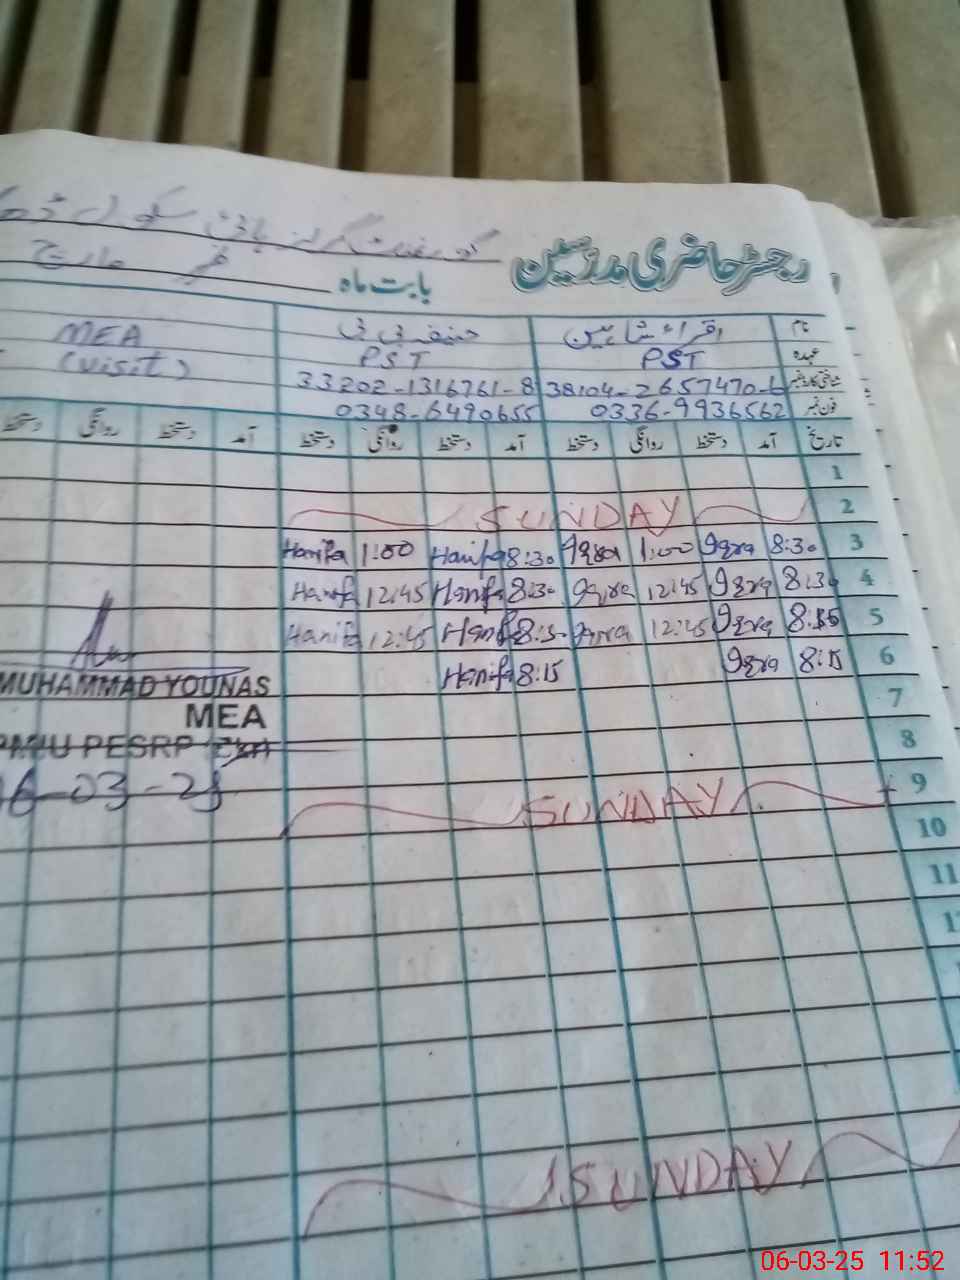 گورنمنٹ گرلز ہائی سکول
رجسٹر حاضری مدرسین
بابت ماہ
مارچ
نام اقراء شاہین حنیفہ بی بی MEA
عہدہ PST PST (visit)
شناختی کارڈ نمبر 38104-2657470-6 33202-1316761-8
فون نمبر 0336-9936562 0348-6490655
تاریخ آمد دستخط روانگی دستخط آمد دستخط روانگی دستخط آمد دستخط روانگی دستخط
1
2 SUNDAY
3 8:30 Iqra 1:00 Iqra 8:30 Hanifa 1:00 Hanifa
4 8:30 Iqra 12:45 Iqra 8:30 Hanifa 12:45 Hanifa
5 Iqra 12:45 Iqra 8:30 Hanifa 12:45 Hanifa
6 8:15 Iqra 8:15 Hanifa
MUHAMMAD YOUNAS
7
MEA
8
PMIU PESRP
9 SUNDAY
06-03-25
10
11
SUNDAY
06-03-25 11:52